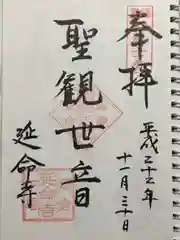 奉拝
平成二十二年
十一月三十日
聖観世音
延命寺